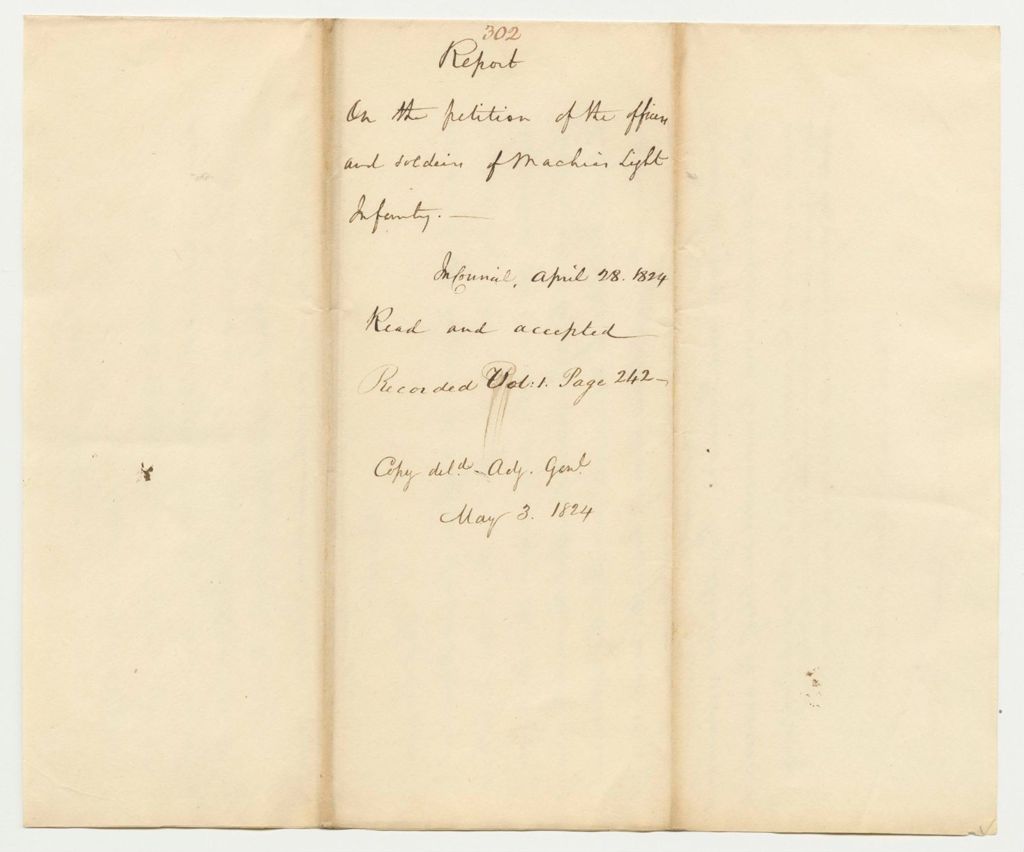 302
Report
On the petition of the officers
and soldeirs of Machias Light
Infantry. —
In Council, April 28. 1824
Read and accepted
Recorded Vol: 1. Page 242 —
Copy deld. Adj. Genl.
May 3. 1824